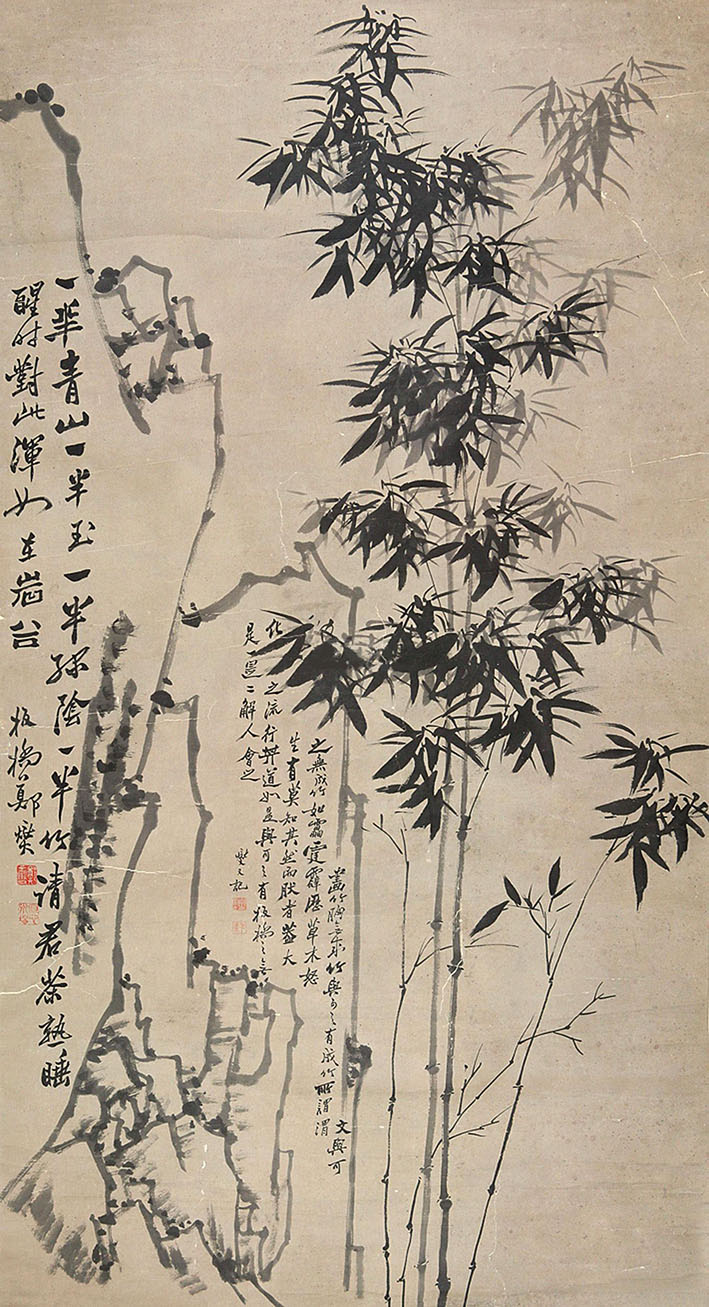 一半青山一半玉一半綠陰一半竹請君茶熟睡
醒时對此渾如在嵓谷
板橋鄭燮
文與可
畫竹胸成竹與可之有成竹所謂渭
之無成竹如雷霆霹靂草木怒
生有莫知其然而然者蓋大
化之流行其道如是與可之有板橋之無
是一是二解人會之
燮又記